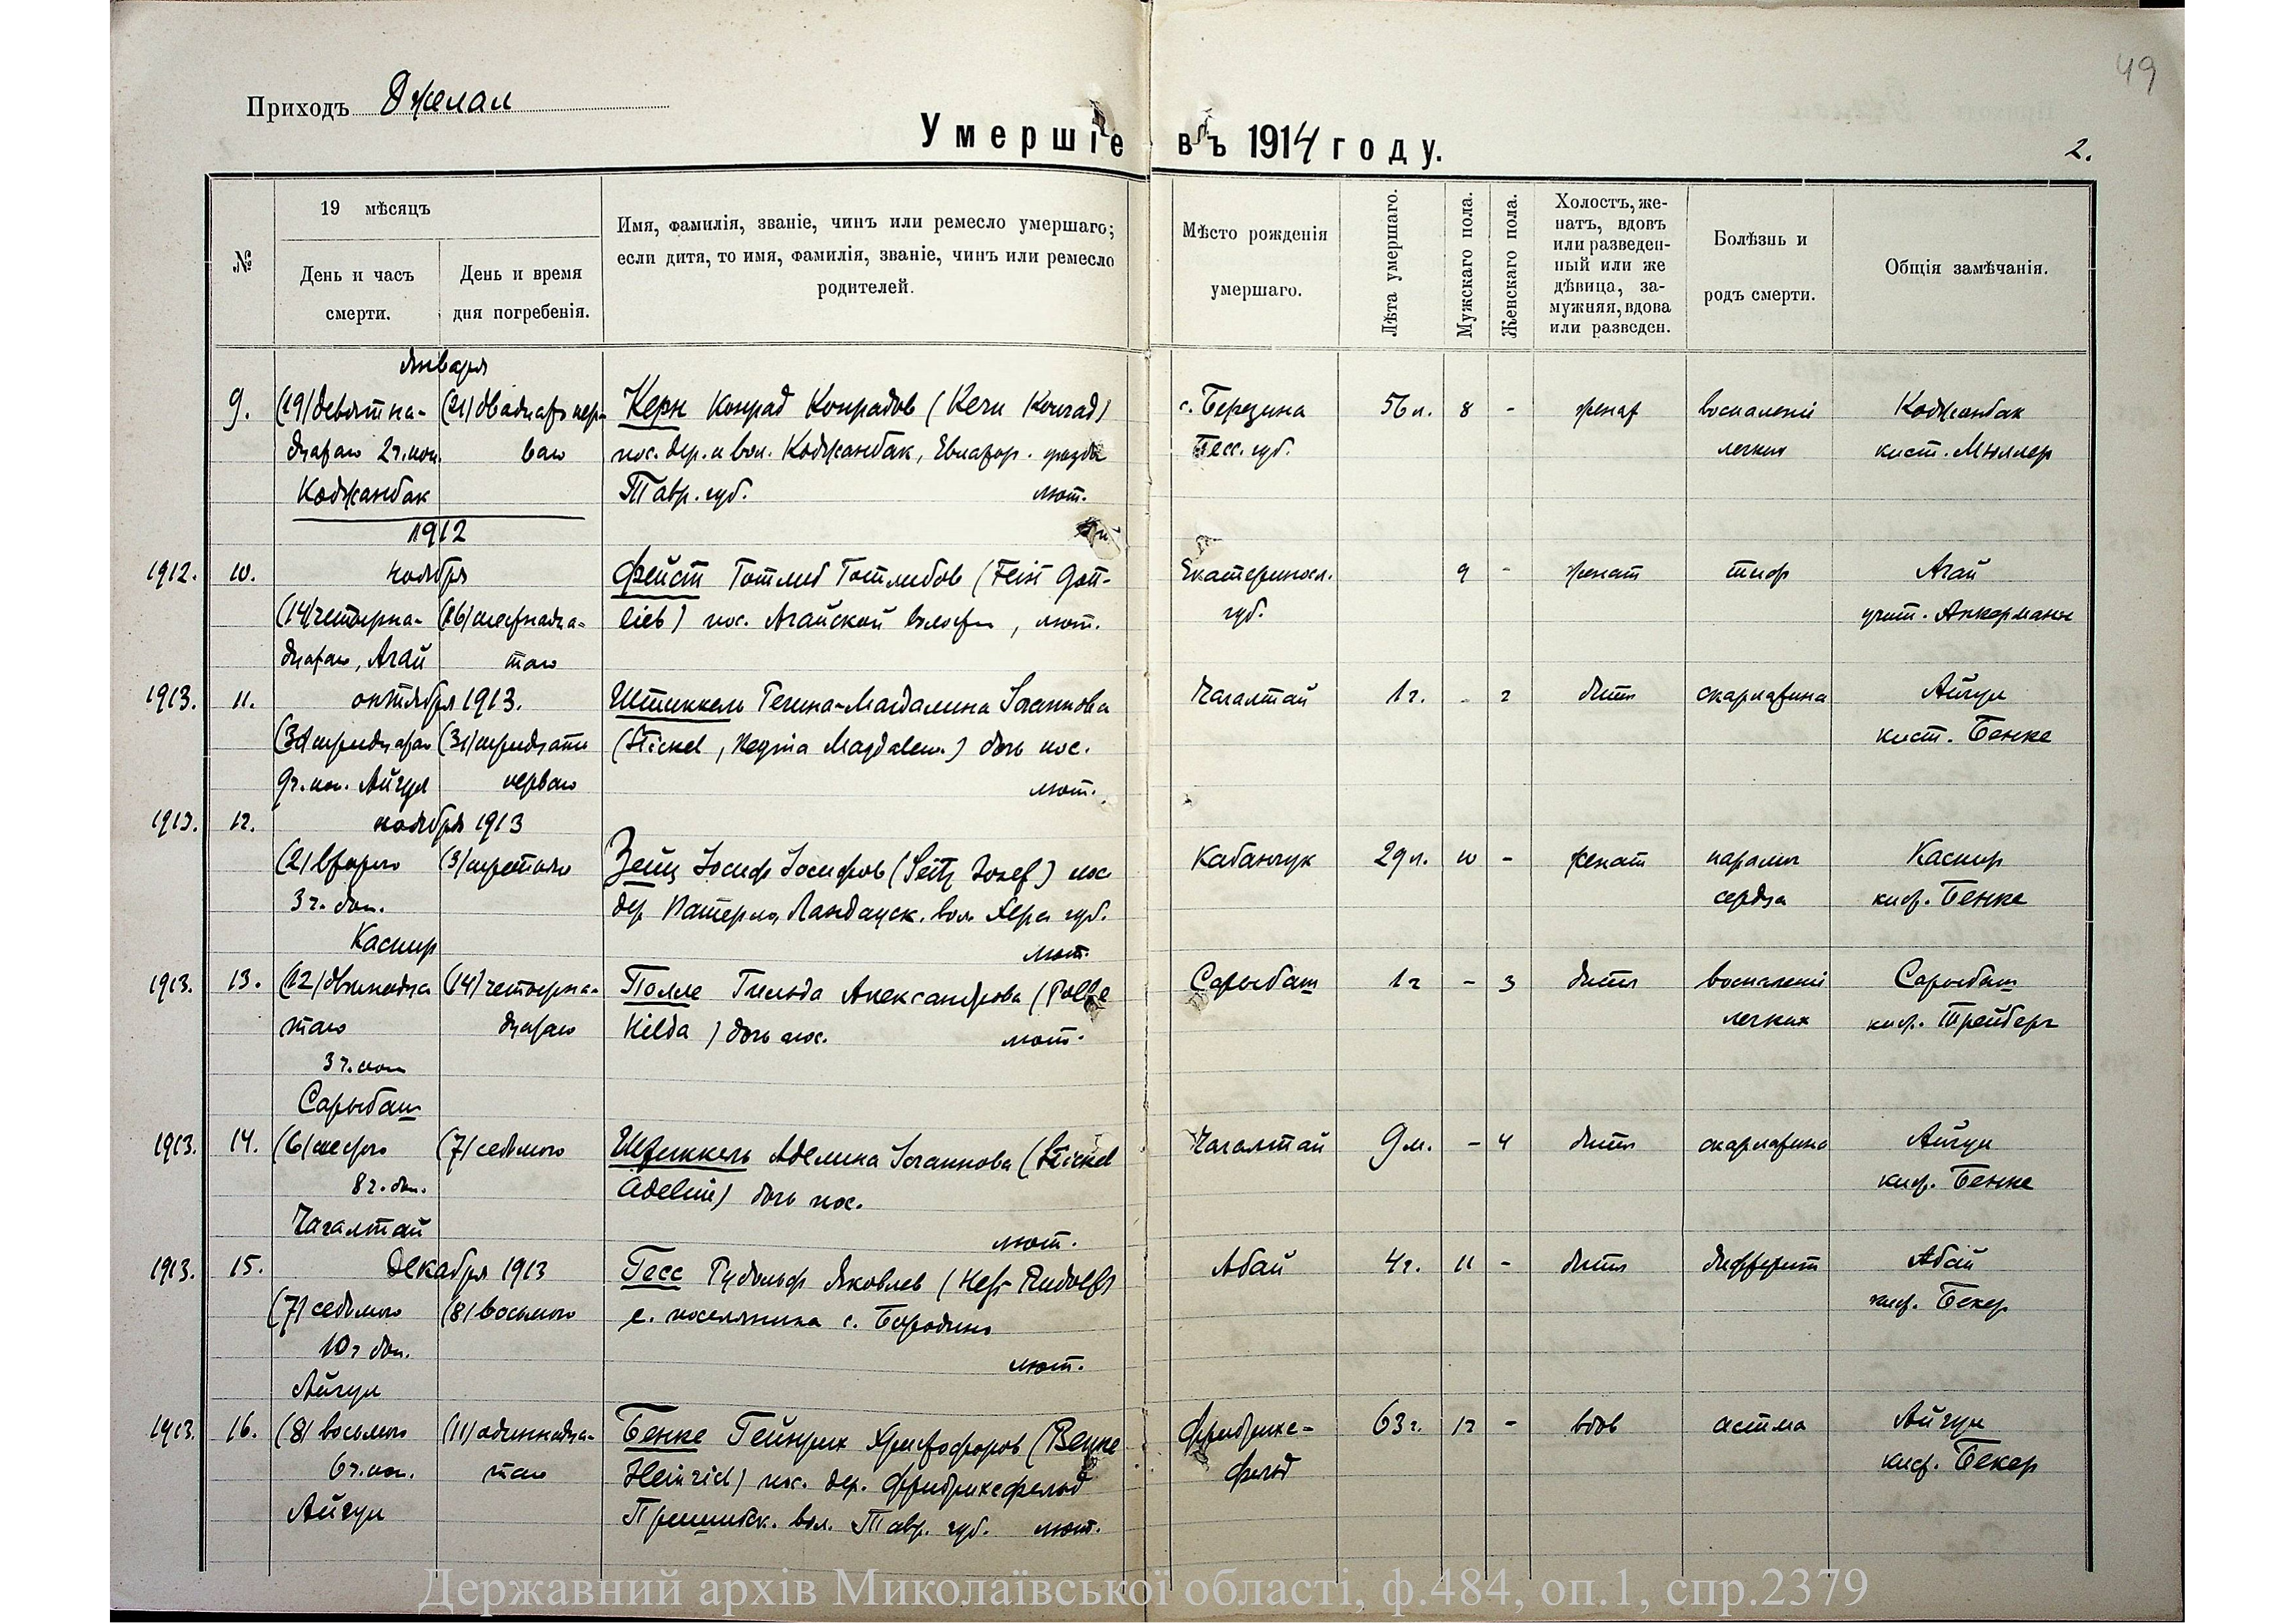 49
Приходъ Джелал
Умершіе въ 1914 году.
2.
№
19 мѣсяцъ
День и часъ смерти.
День и время дня погребенія.
Имя, фамилія, званіе, чинъ или ремесло умершаго;
если дитя, то имя, фамилія, званіе, чинъ или ремесло
родителей.
Мѣсто рожденія
умершаго.
Лѣта умершаго.
Мужскаго пола.
Женскаго пола.
Холостъ, же-
натъ, вдовъ
или разведен-
ный или же
дѣвица, за-
мужняя, вдова
или разведен.
Болѣзнь и
родъ смерти.
Общія замѣчанія.
января
9. (19) девятна- (21) двадцать пер- Керн Конрад Конрадов (Kern Konrad) с. Березина 56 л. 8 - женат воспаленіе Коджанбак
дцатаго 2 ч. поп. ваго пос. дер. и вол. Коджанбак, Евпатор. уезда Бесс. губ. легких кист. Мюллер
Коджанбак Тавр. губ. лют.
1912
1912. 10. ноября Фейст Готлиб Готлибов (Feist Gott- Екатериносл. 9 - женат тиф Агай
(14) четырна- (16) шестнадца- lieb) пос. Агайской волости, лют. губ. учит. Аккерманн
дцатаго, Агай таго
1913. 11. октября 1913. Штиккель Регина-Магдалина Иоганнова Чагалтай 1 г. - 2 дитя скарлатина Айгул
(30) тридцатаго (31) тридцать (Stickel, Regina Magdalena) дочь пос. кист. Бенке
9 ч. поп. Айгул перваго лют.
1913. 12. ноября 1913
(2) второго (3) третьяго Зейц Иосиф Иосифов (Seitz Josef) пос. Кабанчук 29 л. 10 - женат паралич Каспир
3 ч. доп. дер. Ландауск. вол. Херс. губ. сердца кист. Бенке
Каспир лют.
1913. 13. (12) двенадца (14) четырна- Полле Гильда Александрова (Polle Сарыбаш 1 г - 3 дитя воспаленіе Сарыбаш
таго дцатаго Hilda) дочь пос. лют. легких кист. Трейберг
3 ч. поп
Сарыбаш
1913. 14. (6) шестого (7) седьмого Штиккель Аделина Иоганнова (Stickel Чагалтай 9 м. - 4 дитя скарлатина Айгул
8 ч. доп. Adeline) дочь пос. кист. Бенке
Чагалтай лют.
1913. 15. Декабря 1913 Гесс Рудольф Яковлев (Heß Rudolf) Абай 4 г. 11 - дитя дифтерит Абай
(7) седьмого (8) восьмого с. поселянина с. Бородино кист. Бекер
10 ч доп. лют.
Айгул
1913. 16. (8) восьмого (11) одиннадца- Бенке Гейнрих Христофоров (Benke Фридрихс- 63 г. 12 - вдов астма Айгул
6 ч. поп. таго Heinrich) пос. дер. Фридрихсфельд фельд кист. Бекер
Айгул Пришибск. вол. Тавр. губ. лют.
Державний архів Миколаївської області, ф.484, оп.1, спр.2379